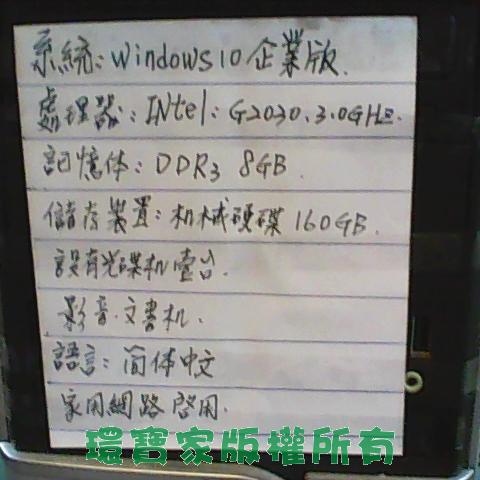 系統：Windows 10 企業版.
處理器：INtel：G2030.3.0GHz.
記憶体：DDR3 8GB.
儲存裝置：机械硬碟 160GB.
設有光碟机壹台.
影音.文書机.
語言：简体中文
家用網路 啓用.
環寶家版權所有